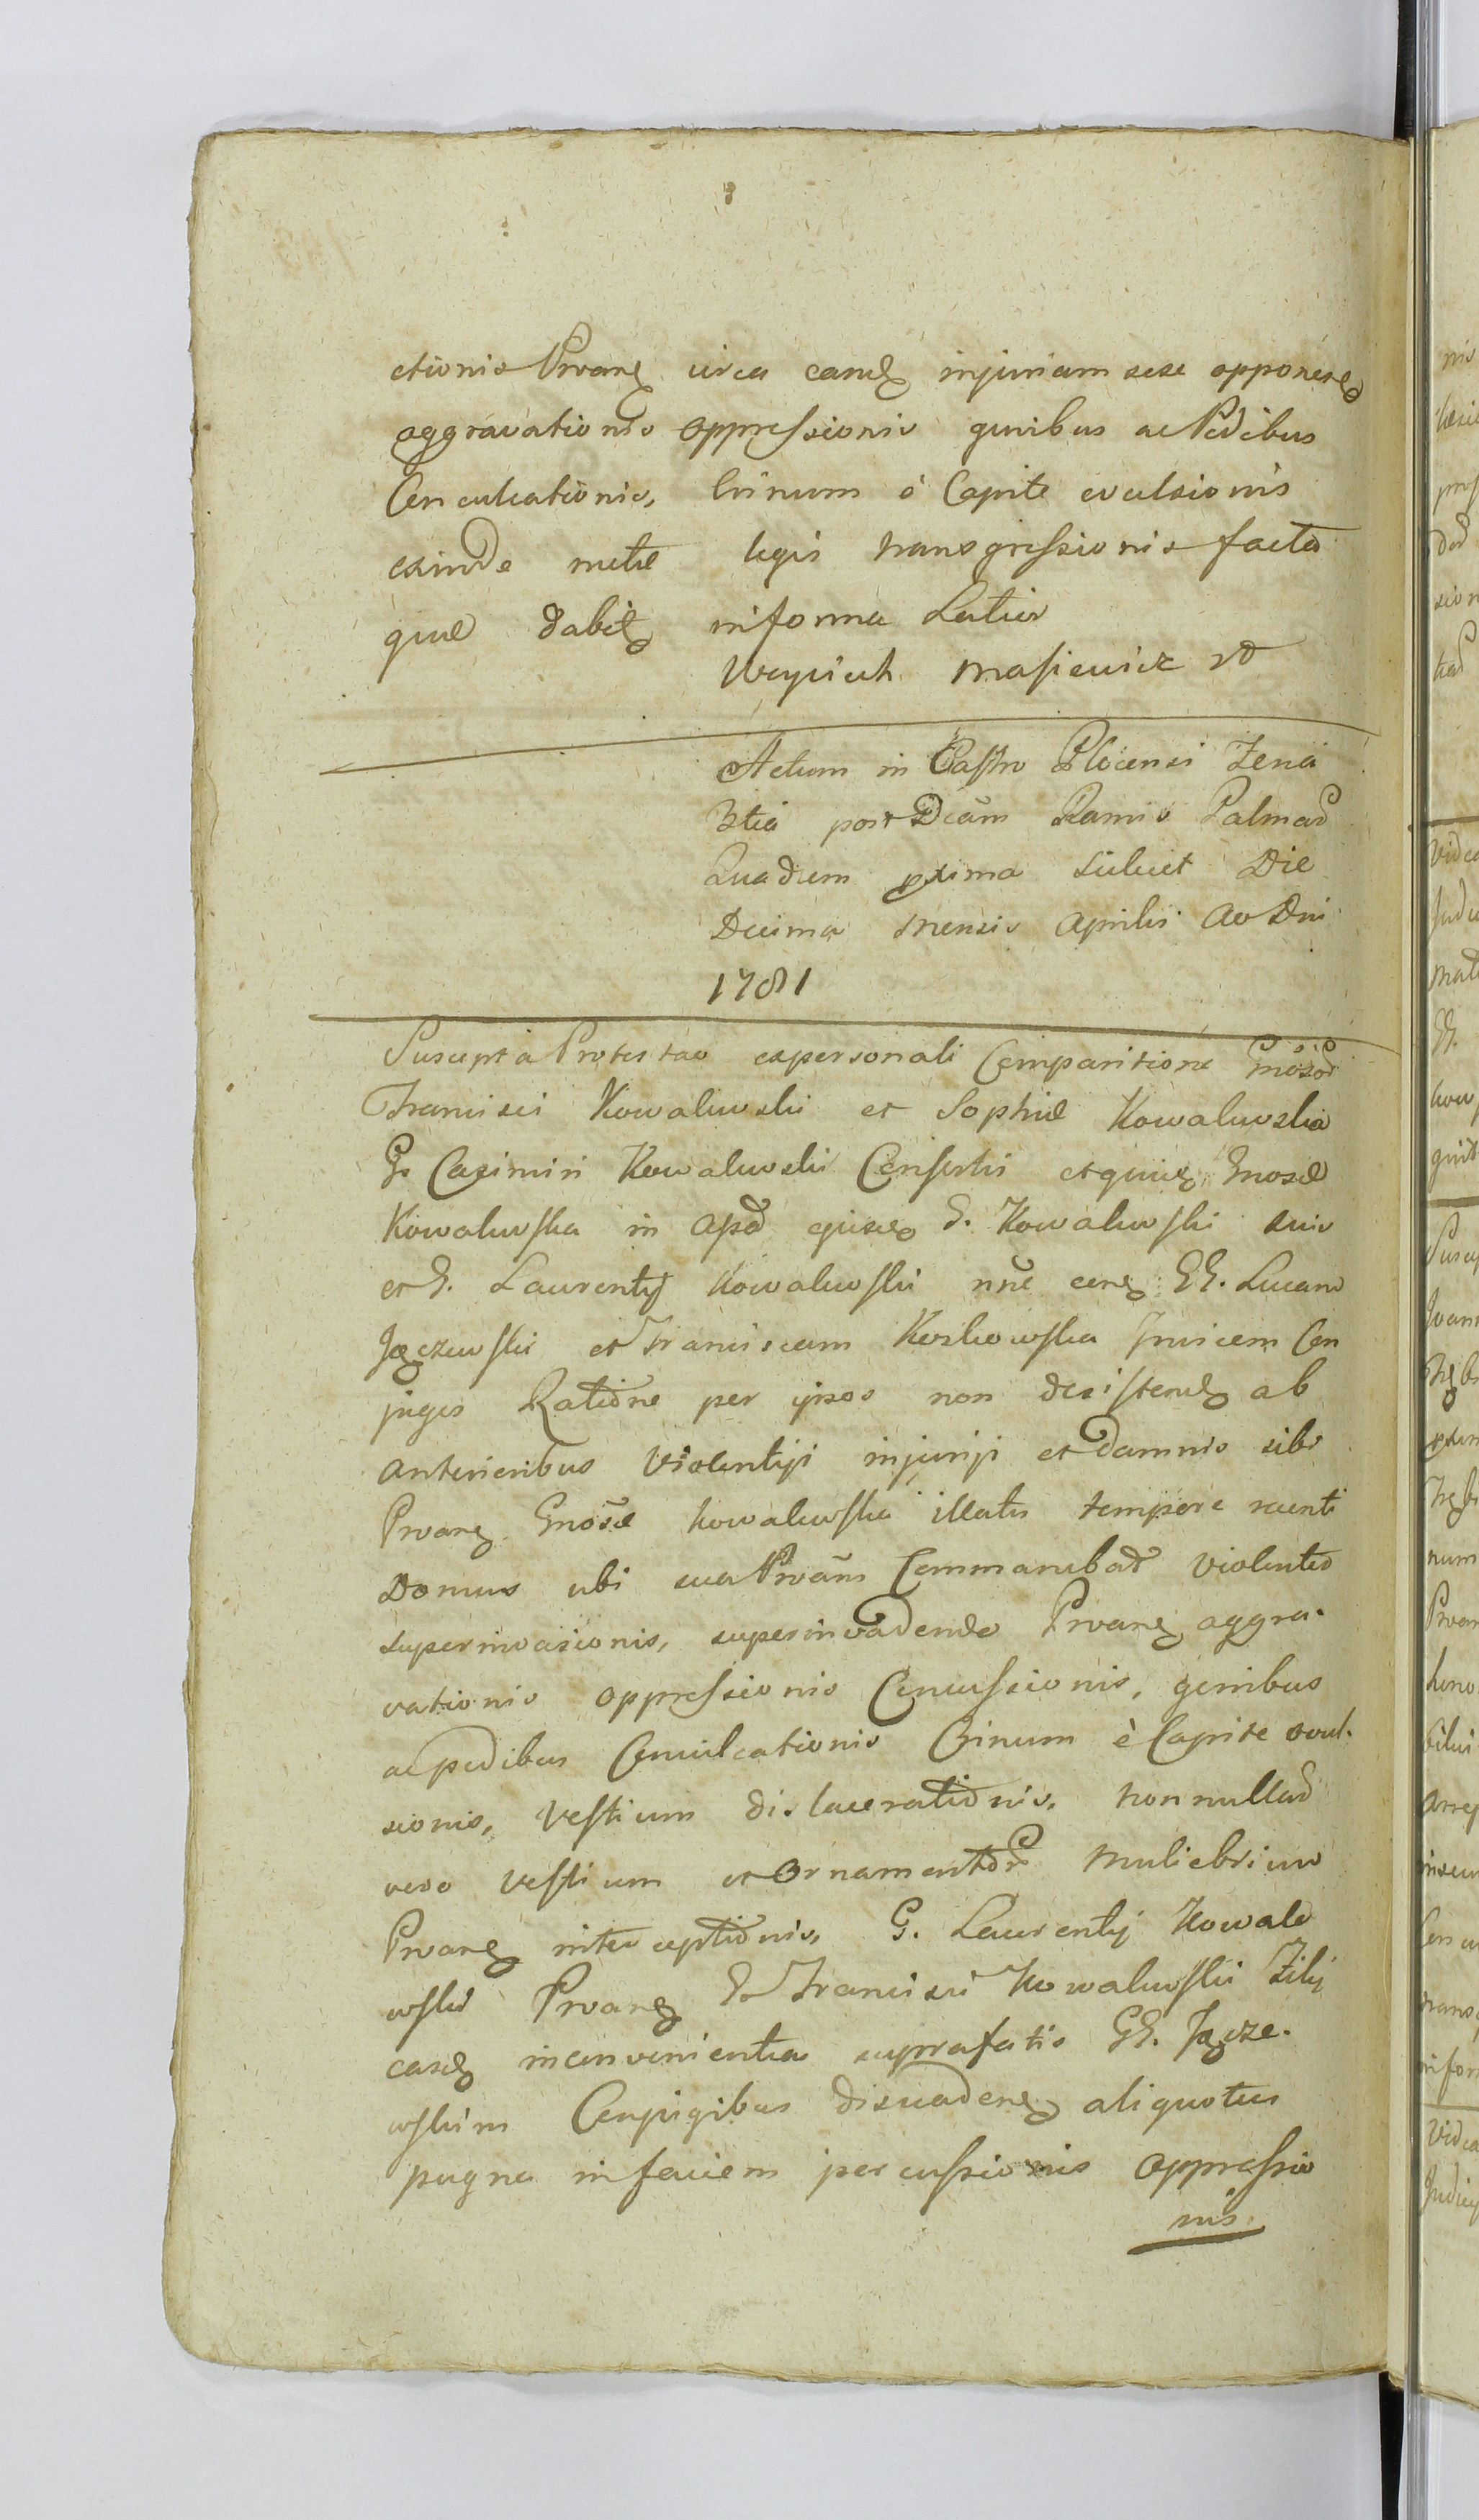 ctionis Prnane circa eande injuriam sese opponere
aggravationis oppressionis genibus ac Pedibus
Conculcationis, Crinum è Capite evulsionis
exinde metæ legis transgressionis facta
quæ dabit in forma Latior
Woyciech Masiewicz
Actum in Castro Plocensi Feria
3tia post Dcam Ramis Palmar
Quadrem pxima scilicet Die
Decima Mensis Aprilis Ao Dni
1781
Suscepta Protestao ex personali Comparitione Gnosor
Francisci Kowalewski et Sophiæ Kowalewska
G. Casimiri Kowalewski Consortis et quidem Gnosæ
Kowalewska in assa ejusdem G. Kowalewski sui
et G. Laurentij Kowalewski nne contra GG. Lucam
Jączewski et Franciscam Koskowska Invicem Con
juges Ratione per ipsos non desistendo ab
anterioribus violentijs injurijs et damnis sibi
Prnane Gnosæ Kowalewska illatis tempore recenti
Domus ubi sua Prnam Commanebat violenter
superinvasionis, superinvadendo Prnane aggra-
vationis oppressionis Concussionis, genibus
ac pedibus Conculcationis Crinum è Capite evul-
sionis, Vestium dislacerationis, nonnullar
vero Vestium et Ornamentor Muliebrium
Prnane interceptionis, G. Laurentij Kowale
wski Prnane G. Francisci Kowalewski Filij
easdem inconvenientias supra fatis GG. Jącze-
wskim Conjugibus disuadene aliquoties
pugno in faciem percussionis oppressio
nis